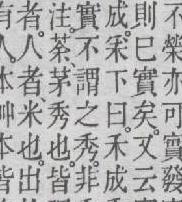 不榮亦可實發
則已實矣又云
成采下曰禾成
實不謂之秀非
注荼茅秀也皆
者人者米也出
有人本艸本皆